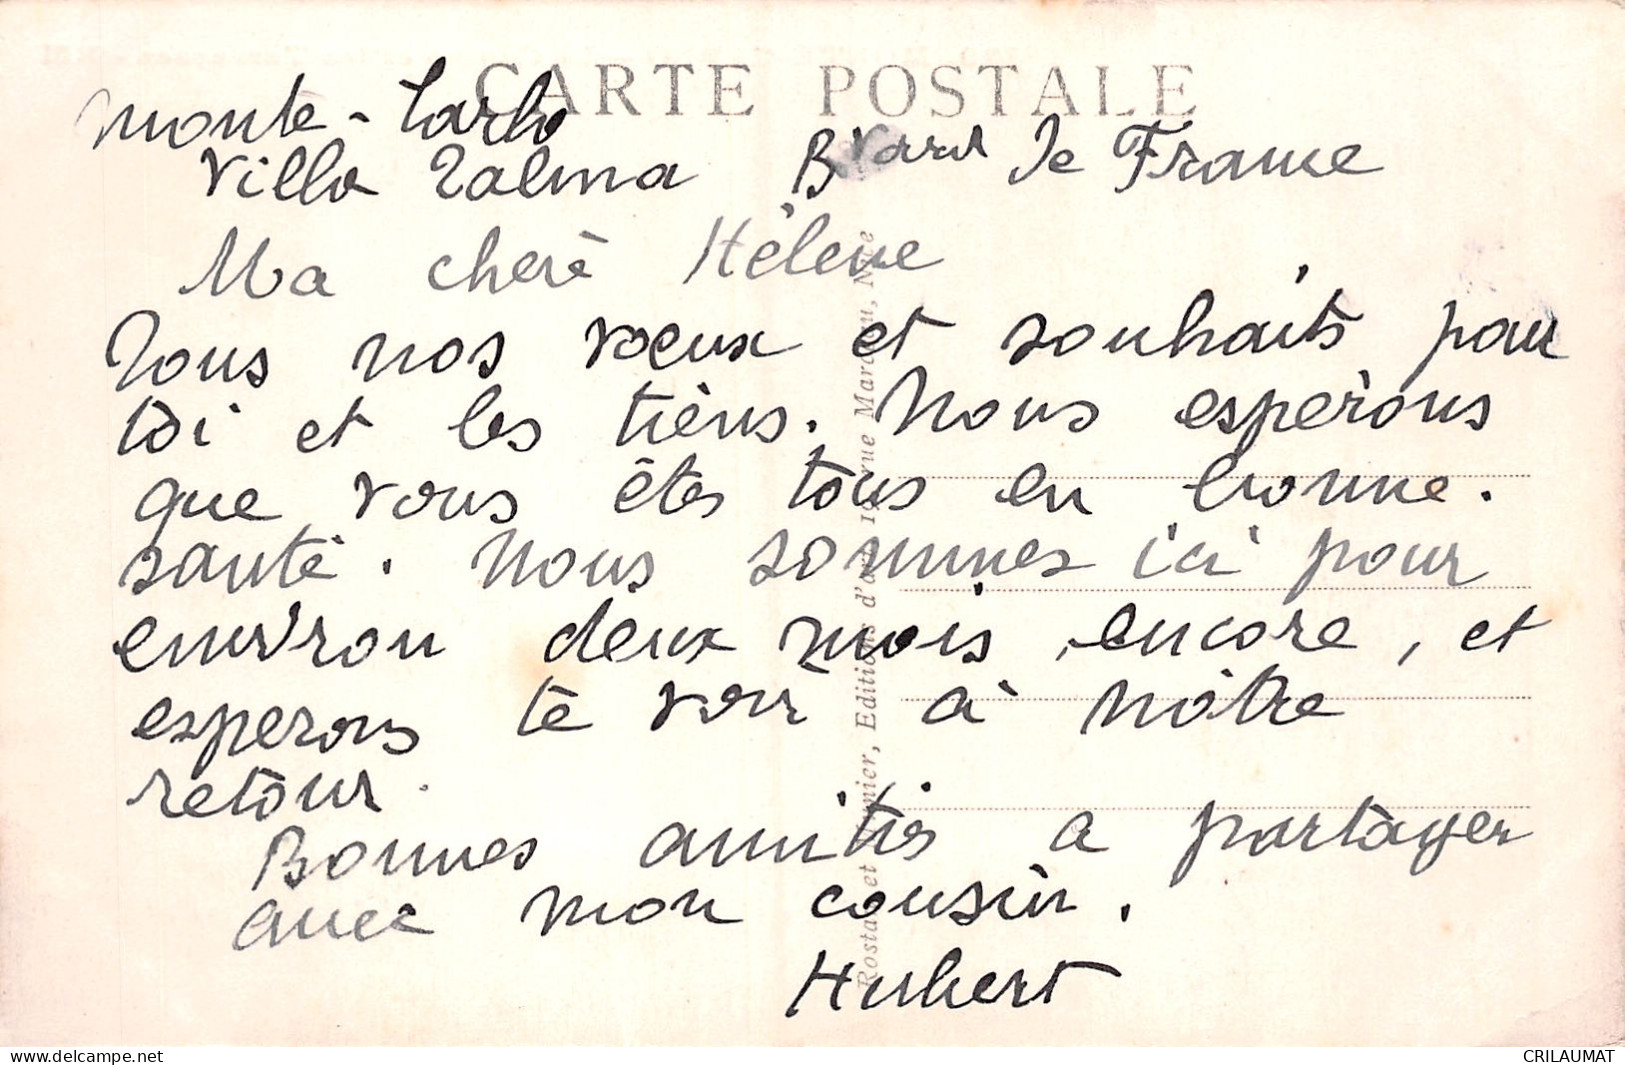 CARTE POSTALE
Monte-Carlo
Villa Zalma Bvard de France
Ma cherè Hélène
Tous nos voeux et souhaits pour
toi et les tièns. Nous espèrons
que vous êtes tous en bonne.
santé. Nous sommes ici pour
environ deux mois encore, et
esperons te voir à nôtre
retour.
Bonnes amitiés a partager
avec mon cousin.
Hubert
Rostan et Munier, Editions d'art 19 rue Nice
www.delcampe.net
CRILAUMAT